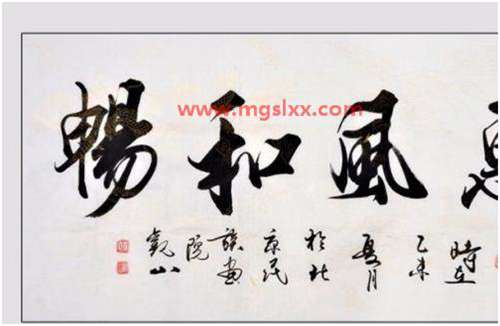 惠風和暢
www.mgslxx.com
時在
乙未
夏月
於北
京民
族畫
院
觀山